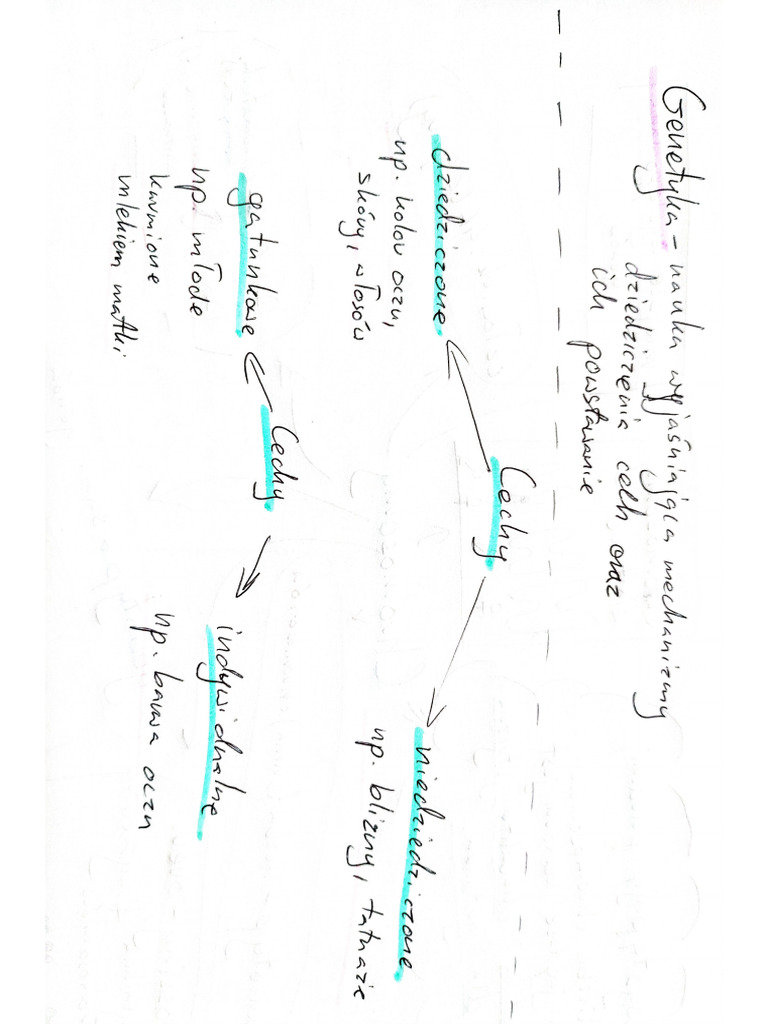 Genetyka - nauka wyjaśniająca mechanizmy
dziedziczenia cech oraz
ich powstawanie
Cechy
dziedziczone
np. kolor oczu,
skóry, włosów
niedziedziczone
np. blizny, tatuaże
Cechy
gatunkowe
np. młode
karmione
mlekiem matki
indywidualne
np. barwa oczu